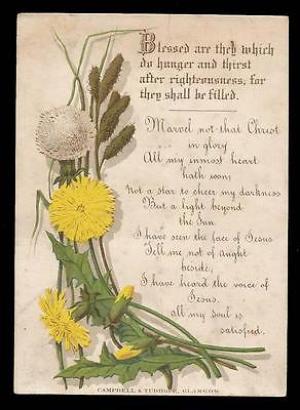 Blessed are they which
do hunger and thirst
after righteousness; for
they shall be filled.
Marvel not that Christ
in glory
All my inmost heart
hath won;
Not a star to cheer my darkness
But a light beyond
the Sun.
I have seen the face of Jesus
Tell me not of aught
beside;
I have heard the voice of
Jesus.
all my Soul is
satisfied.
CAMPBELL & TUDHOPE, GLASGOW